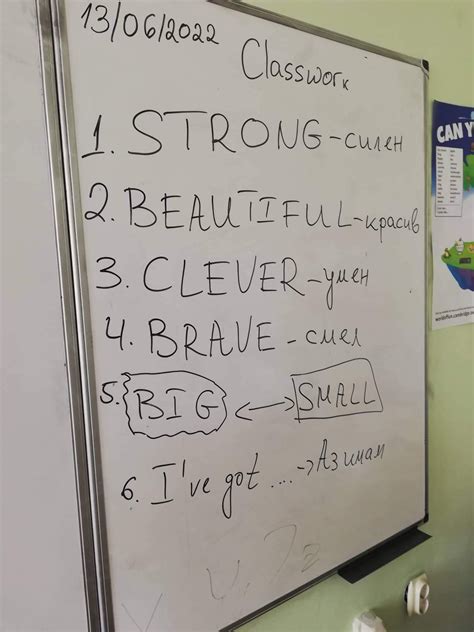 13/06/2022
Classwork
1. STRONG - силен
2. BEAUTIFUL - красив
3. CLEVER - умен
4. BRAVE - смел
5. BIG <--> SMALL
6. I've got .... -> Аз имам
CAN Y